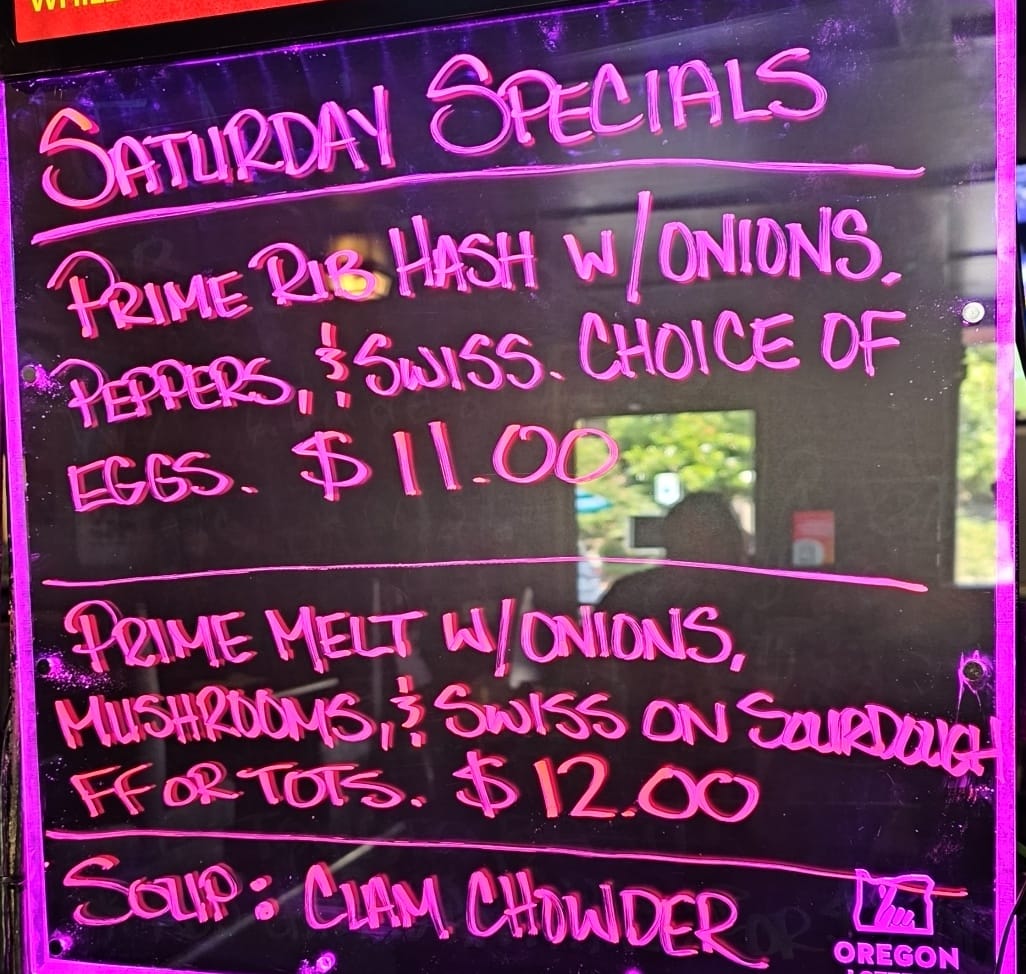 SATURDAY SPECIALS
PRIME RIB HASH W/ONIONS,
PEPPERS, & SWISS. CHOICE OF
EGGS. $11.00
PRIME MELT W/ONIONS,
MUSHROOMS, & SWISS ON SOURDOUGH
FF OR TOTS. $12.00
SOUP: CLAM CHOWDER
OREGON